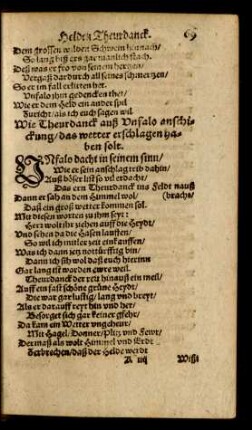 Helden Theurdanck. 69
Dem grossen wilden Schwein hinnach/
So lang biß ers gar manlich stach.
Deß was er fro von seinem hertzen/
Vergaß dardurch all seines schmertzen/
So er im fall erlitten het.
Unfalo ihm gedencken thet/
Wie er dem Held ein ander spil
Zuricht/als ich euch sagen wil.
Wie Theurdanck auß Unfalo anschi-
ckung/das wetter erschlagen ha-
ben solt.
UNfalo dacht in seinem sinn/
Wie er sein anschlag recht dahin/
Auß böser list so vol erdacht/
Das ern Theurdanck ins Feldt nauß
Dann er sah an dem Himmel wol/ (bracht/
Daß ein groß wetter kommen sol.
Mit diesen worten zu ihm seyt:
Herr wolt ihr ziehen auff die Heydt/
Und sehen da die Hasen lauffen/
So wil ich mitler zeit einkauffen/
Was ich dann jetz notturfftig bin/
Dann ich sih wol daß euch hierinn
Gar lang ist worden ewre weil.
Theurdanck der reit hinauß ein meil/
Auff ein fast schöne grüne Heydt/
Die war gar lustig/lang und breyt/
Als er darauff reyt hin und her/
Besorget sich gar keiner gfehr/
Da kam ein Wetter ungeheur/
Mit Hagel/Donner/Plitz und Fewr/
Dermaß als wolt Himmel und Erdt
Zerbrechen/daß der Helde werdt
Wißt